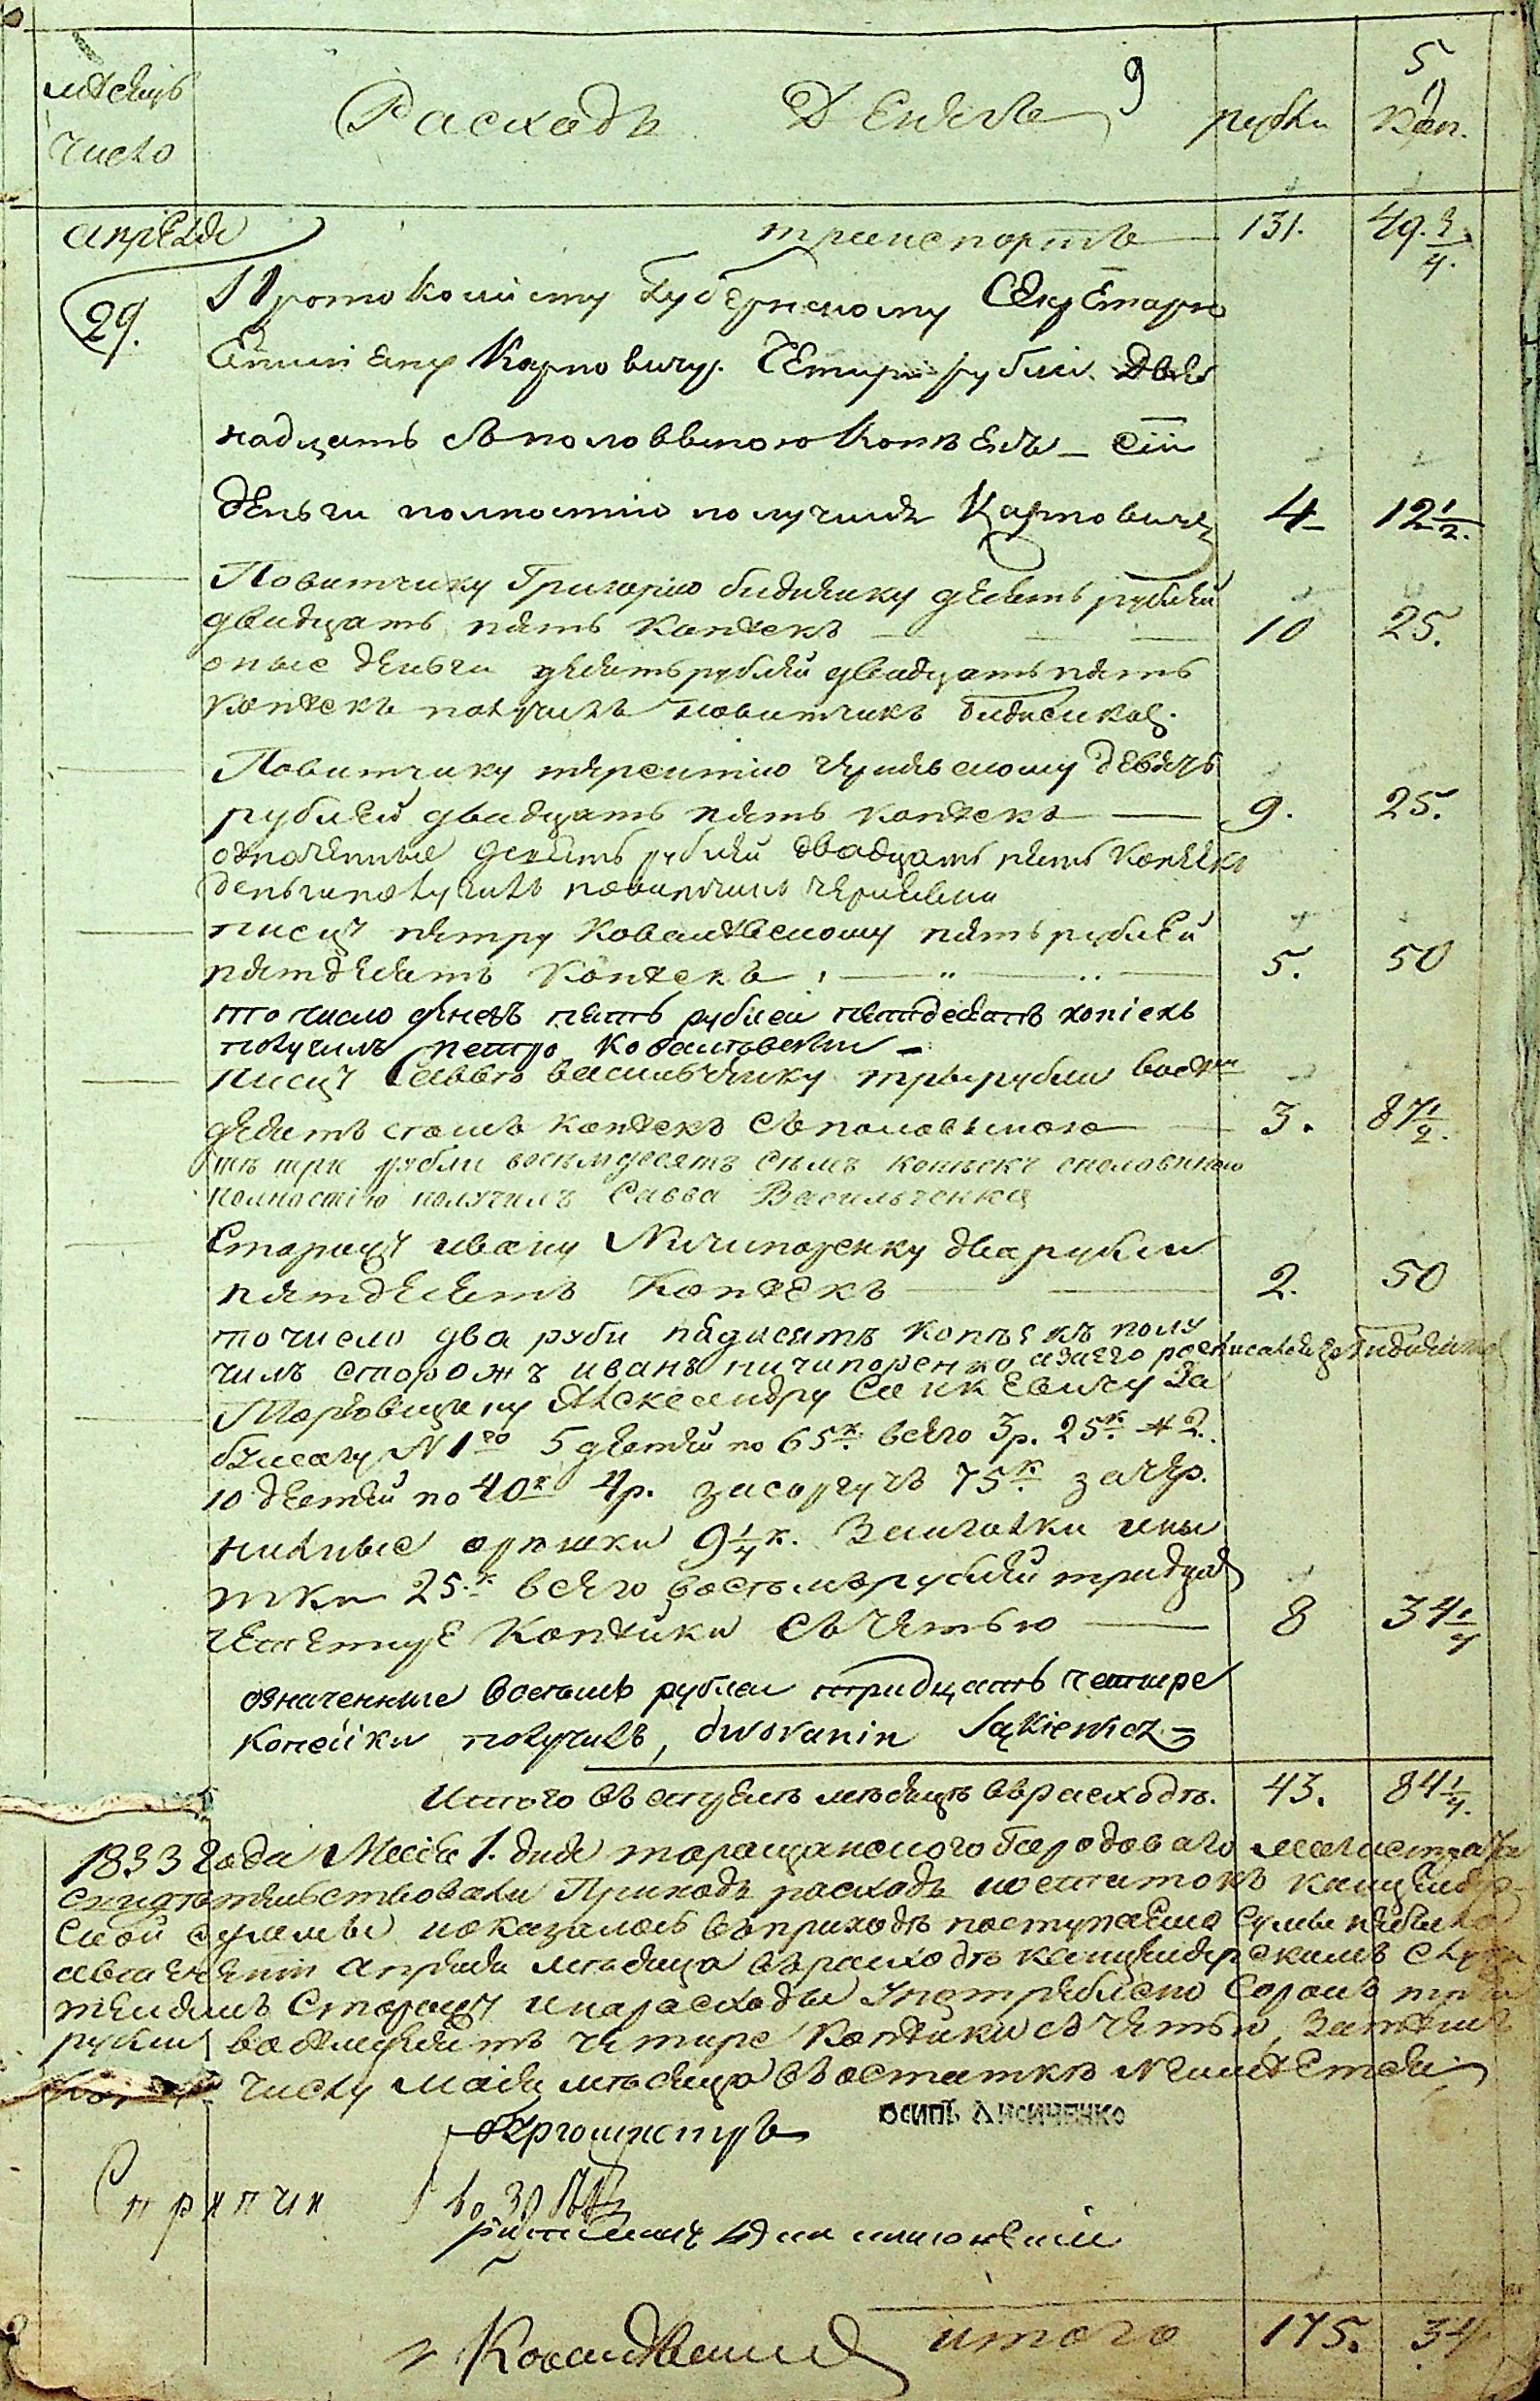 5
9
мѣсяцъ
число
Расходъ Денегъ
рубли
коп.
апреля транспортъ 131. 49 3/4.
29. Протоколисту Губернскому Секретарю
Карповичу. Четыре рубли две
надцать съ половыною копѣекъ — сіи
деньги полностію получилъ Карповичъ 4 12 1/2.
Повитчику Григорию десять рублей
двадцать пять копѣекъ 10 25.
оные деньги десять рублей двадцать пять
копѣекъ получилъ повитчикъ
Повитчику девять
рублей двадцать пять копѣекъ 9. 25.
означенные девять рублей двадцать пять копѣекъ
деньги получилъ повитчикъ
писцу петру Ковалѣвскому пять рублей
пятдесятъ копѣекъ 5. 50
то число денегъ пять рублей пятдесатъ копіекъ
получилъ петро Ковалѣвскии
писцу Савве василъченку три рубли восем
десятъ семь копѣекъ съ половыною 3. 87 1/2.
тѣ три рубли восемдесятъ семъ копѣекъ споловиною
полностію получилъ Савва Васильченко
Сторожу ивану Ничипоренку два рубли
пятдесятъ копѣекъ 2. 50
то число два руби пядисятъ копѣекъ полу
чилъ сторожъ иванъ ничипоренко а за его росписался
Торговцу Александру Санкевичу за
бумагу N 1го 5 дестей по 65 к. всего 3 р. 25 к. # 2.
10 дестей по 40 к 4 р. за сургучъ 75 к за чер.
нилные орешки 9 1/4 к. За иголки и ны
тки 25. к всего восемь рублей тридцать
четыре копѣйки съ четью 8 34 1/4
означенные восемь рублеи тридцать четире
копейки получилъ, dworanin Sąkiewicz
Итого въ апрелѣ мѣсяцѣ въ расходѣ. 43. 84 1/4.
1833 года Маия 1. дня таращанского Городового магистрата
свидѣтельствовали Приходъ расходъ и остатокъ канцеляр-
ской суммы показалось въ приходѣ поступаемо суммы небыло
а въ течении апреля мѣсяца въ расходѣ канцелярскимъ служи
телямъ Сторожу и на расходы Употреблено сорокъ три
рубли восемдесятъ четире копѣйки съ четью, затемъ
числу Маия мѣсяца въ остаткѣ Неимѣется
бургомистръ ОСИПЪ ЛИСИЧЕНКО
Стряпчи
итого 175. 34